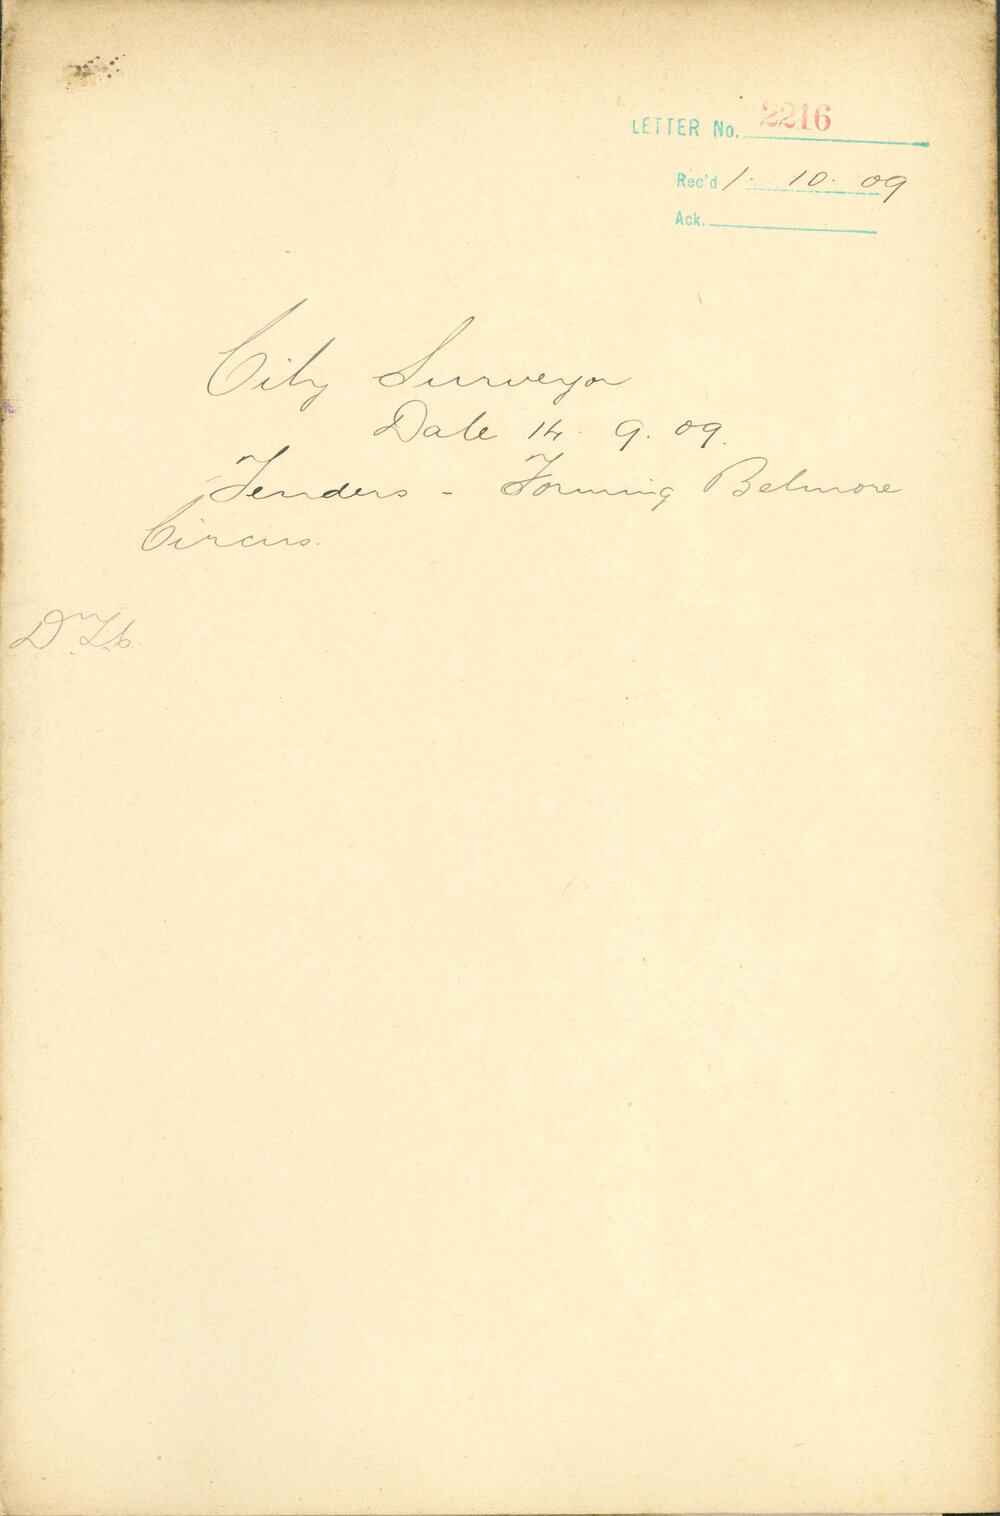 LETTER No. 2216
Rec'd 1. 10. 09
Ack.
City Surveyor
Date 14. 9. 09.
Tenders - Forming Belmore
Circus.